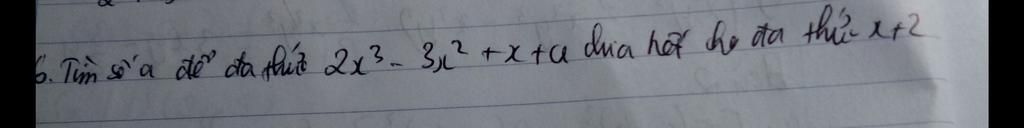 6. Tìm số a để đa thức 2x³ - 3x² + x + a chia hết cho đa thức x+2